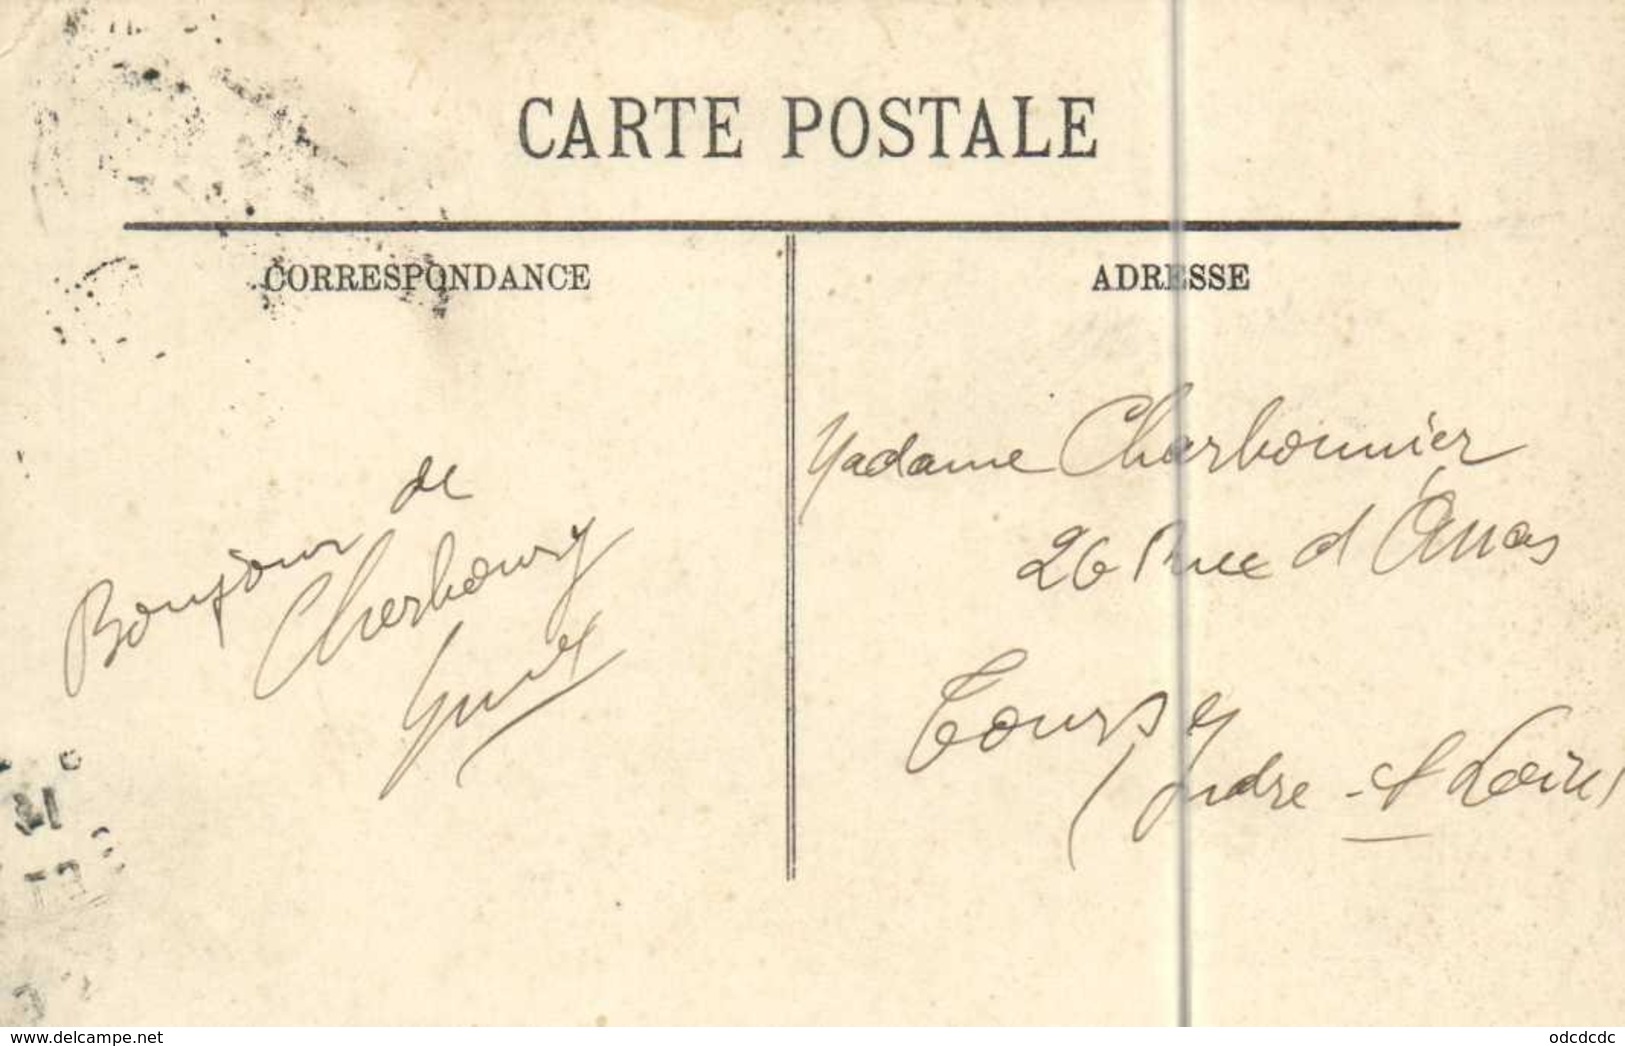 CARTE POSTALE
CORRESPONDANCE
ADRESSE
Bonjour de
Cherbourg
Madame Charbonnier
26 Rue d'Arras
Tours
(Indre-et Loire)
www.delcampe.net
odcdcdc